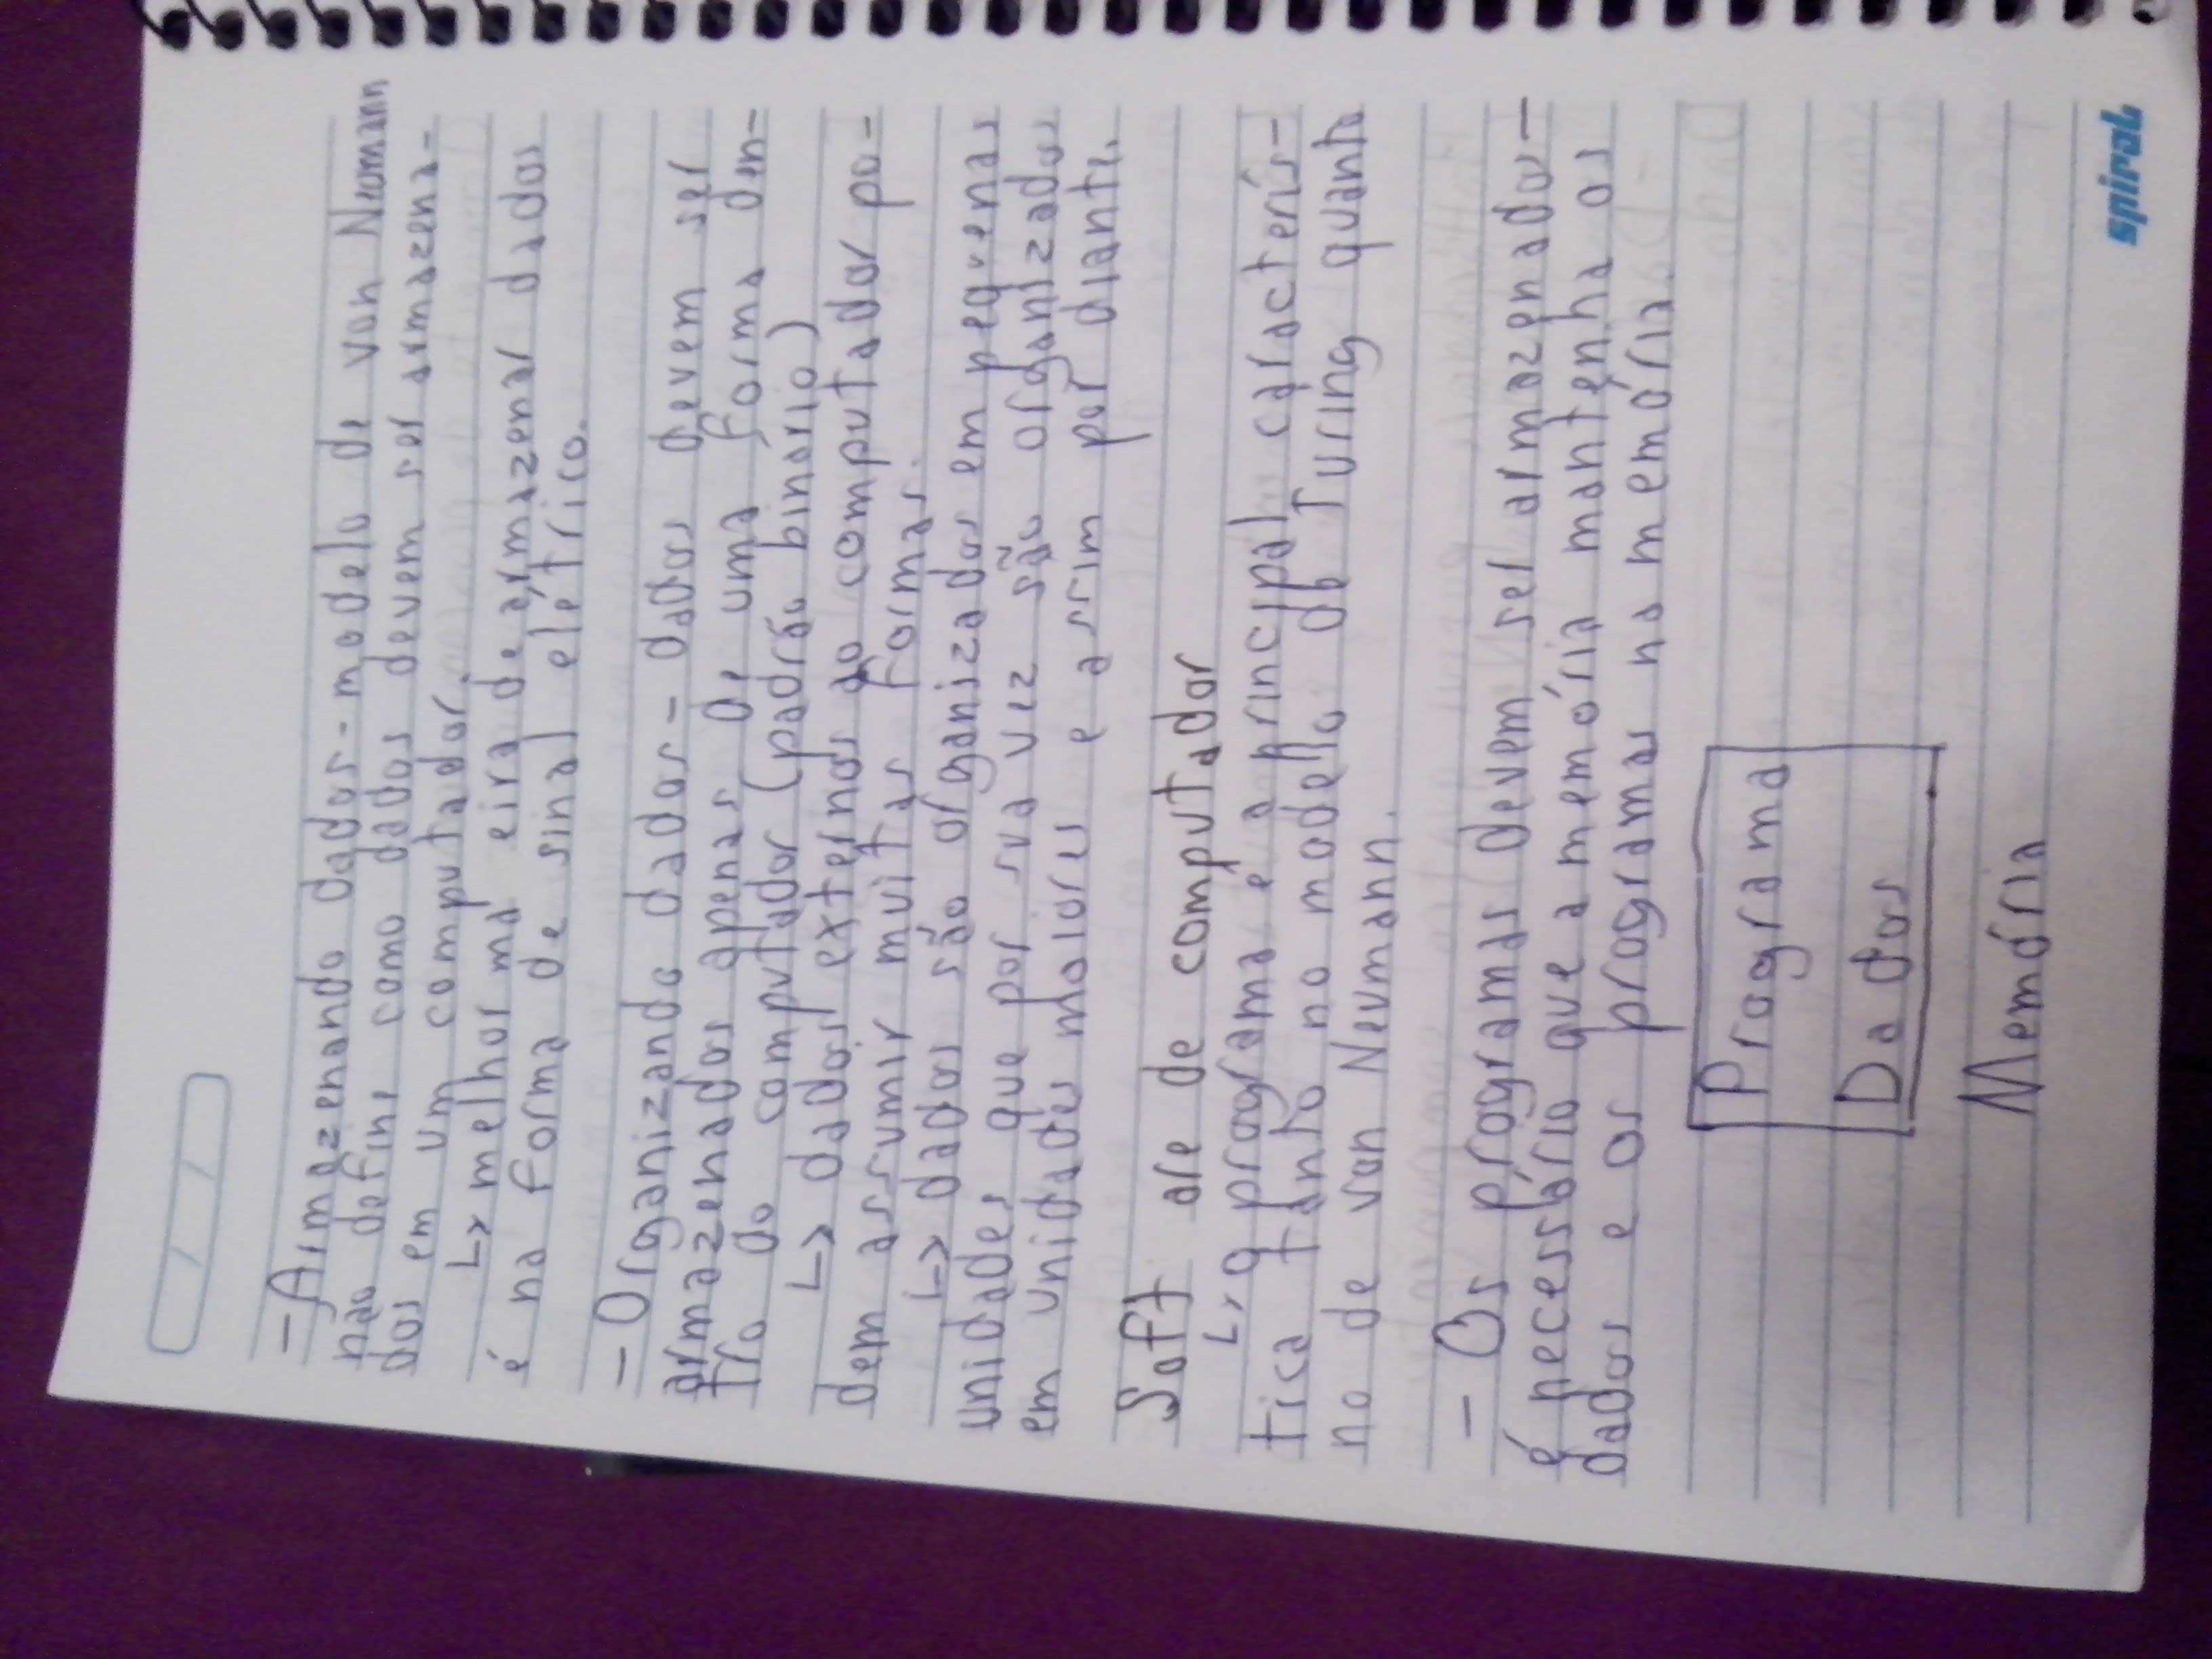 - Armazenando dados - modelo de von Neumann
não define como dados devem ser armazena-
dos em um computador.
↳ melhor ma eira de armazenar dados
é na forma de sinal elétrico.
- Organizando dados - dados devem ser
armazenados apenas de uma forma den-
tro do computador (padrão binário)
↳ dados externos ao computador po-
dem assumir muitas formas.
↳ dados são organizados em pequenas
unidades que por sua vez são organizados
em unidades maiores e assim por diante.
Soft are de computador
↳ o programa é a principal caracterís-
tica tanto no modelo de Turing quanto
no de von Neumann.
- Os programas devem ser armazenados -
é necessário que a memória mantenha os
dados e os programas na memória.
Programa
Dados
Memória
spiral